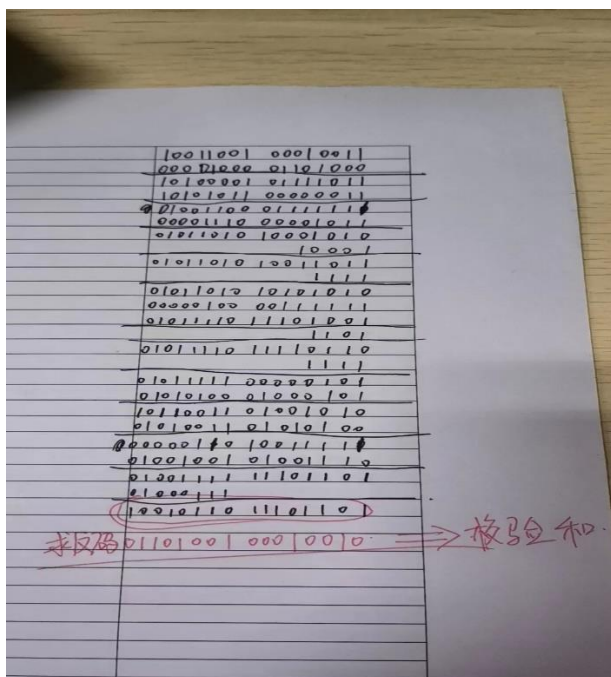 10011001 00010011
00001000 01101000
10100001 01111011
10101011 00000011
01001100 01111111
00001110 00001011
01011010 10001010
10001
01011010 10011011
1111
01011010 10101010
00000100 00111111
01011110 11101001
1101
01011110 11110110
1111
01011111 00000101
01010100 01000101
10110011 01001010
01010011 01010100
00000110 10011111
01001001 01001110
01001111 11101101
01000111
10010110 11101101
求反码 01101001 00010010 ⇒ 校验和.